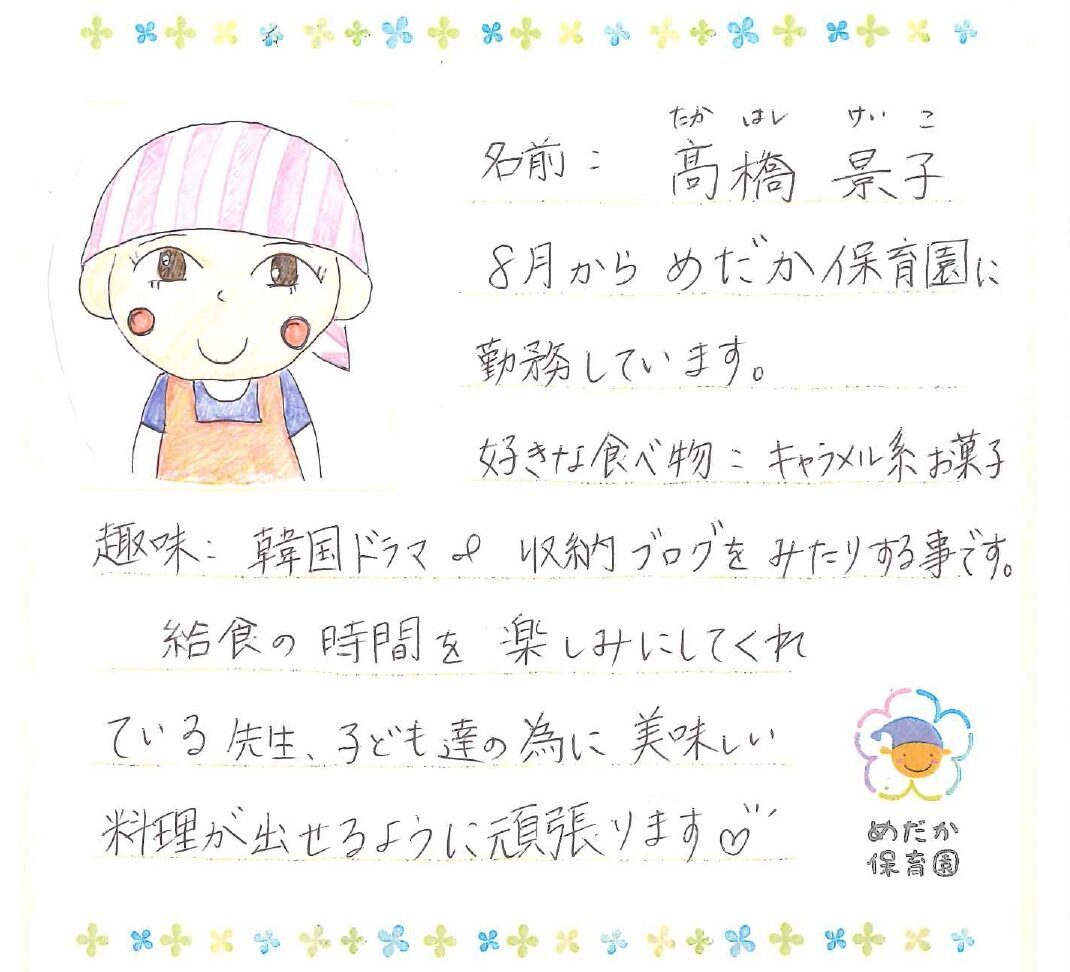 たか はし けい こ
名前： 髙橋 景子
8月から めだか保育園に
勤務しています。
好きな食べ物：キャラメル系お菓子
趣味：韓国ドラマ & 収納ブログをみたりする事です。
給食の時間を楽しみにしてくれ
ている先生、子ども達の為に美味しい
料理が出せるように頑張ります♡
めだか
保育園